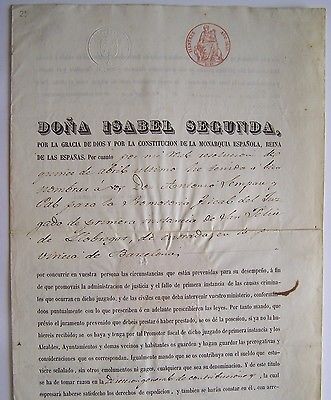 DOÑA ISABEL SEGUNDA,
POR LA GRACIA DE DIOS Y POR LA CONSTITUCION DE LA MONARQUIA ESPAÑOLA, REINA
DE LAS ESPAÑAS. Por cuanto por mi Real resolucion de
de abril ultimo he tenido a bien
nombrar a vos, Don Antonio
para la Promotoria fiscal del Juz-
gado de primera instancia de San Feliu
de Llobregat, de en la pro-
vincia de Barcelona,
por concurrir en vuestra persona las circunstancias que están prevenidas para su desempeño, á fin
de que promovais la administracion de justicia y el fallo de primera instancia de las causas criminales
que ocurran en dicho juzgado, y de las civiles en que deba intervenir vuestro ministerio, conformándoos
puntualmente con lo que prescriben ó en adelante prescribieren las leyes. Por tanto mando, que
prévio el juramento prevenido que debeis prestar ó haber prestado, se os dé la posesion, si ya no la
hubiereis recibido; se os haya y tenga por tal Promotor fiscal de dicho juzgado de primera instancia y los
Alcaldes, Ayuntamientos y demas vecinos y habitantes os guarden y hagan guardar las prerogativas y
consideraciones que os correspondan. Igualmente mando que se os contribuya con el sueldo que estuviere
señalado, sin otros emolumentos ni gages, cualquiera que sea su denominacion. Y de este título
se ha de tomar razon en la Direccion general de contribuciones, la cual
espresará haberse satisfecho los derechos de espedicion, y tambien se hará constar en él, con arre-